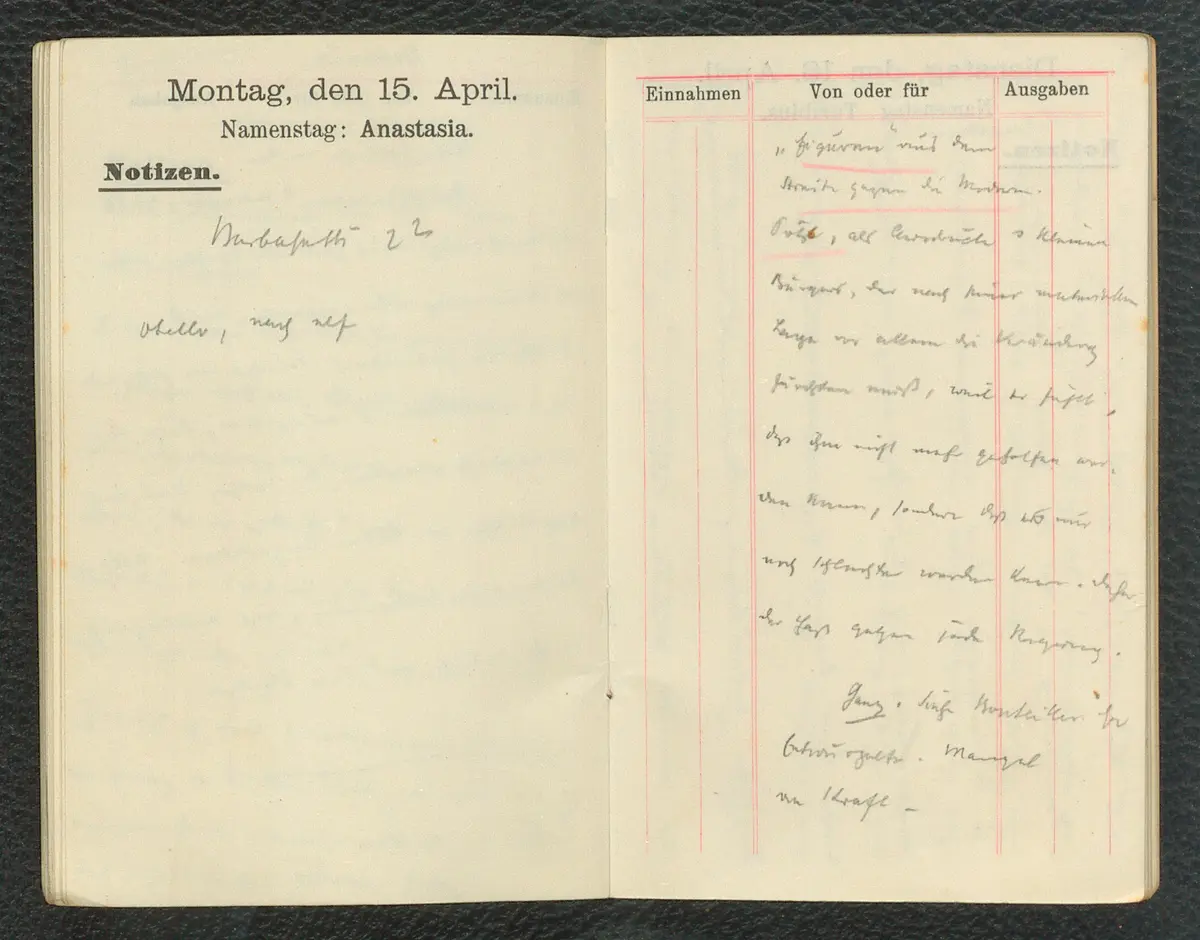 Montag, den 15. April.
Namenstag: Anastasia.
Notizen.
Barbasetti 22
Otello, nach elf
Einnahmen
Von oder für
Ausgaben
„Figuren“ aus dem
Streite gegen die Moderne.
Pötzl, als Ausdruck s kleinen
Bürgers, der nach seiner materiellen
Lage vor allem die Veränderung
fürchten muß, weil er fühlt,
daß ihm nicht mehr geholfen wer-
den kann, sondern daß es nur
noch schlechter werden kann. Daher
der Haß gegen jede Regierung.
Ganz. Siehe
Mangel
an Kraft –